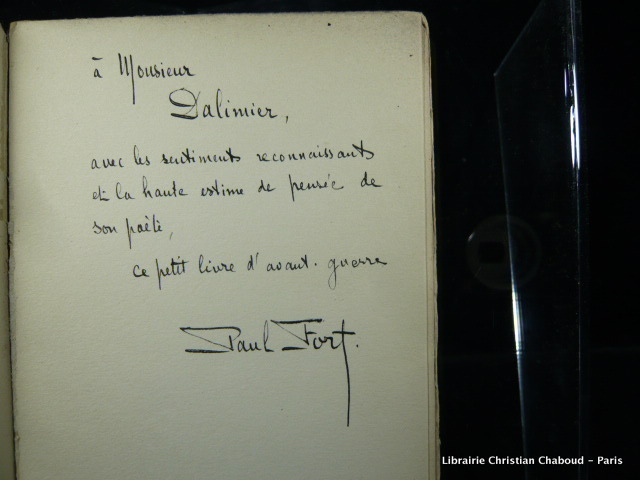 à Monsieur
Dalimier,
avec les sentiments reconnaissants
et la haute estime de pensée de
son poète,
ce petit livre d'avant-guerre
Paul Fort.
Librairie Christian Chaboud - Paris